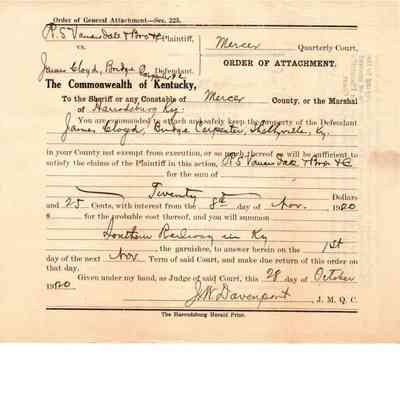 Order of General Attachment—Sec. 225.
R. S Vanarsdale & Bro & C Plaintiff,
vs.
James Cloyd, Bridge Carpenter Defendant.
Mercer Quarterly Court,
ORDER OF ATTACHMENT.
The Commonwealth of Kentucky,
To the Sheriff or any Constable of Mercer County, or the Marshal
of Harrodsburg Ky:
You are commanded to attach and safely keep the property of the Defendant
James Cloyd, Bridge Carpenter, Shelbyville, Ky.
in your County not exempt from execution, or so much thereof as will be sufficient to
satisfy the claims of the Plaintiff in this action, R. S Vanarsdale & Bro & C
for the sum of
Twenty Dollars
and 25 Cents, with interest from the 8th day of Nov. 1920
$ for the probable cost thereof, and you will summon
Southern Railway in Ky
, the garnishee, to answer herein on the 1st
day of the next Nov Term of said Court, and make due return of this order on
that day.
Given under my hand, as Judge of said Court, this 28 day of October
1920
J. W. Davenport J. M. Q. C.
The Harrodsburg Herald Print.